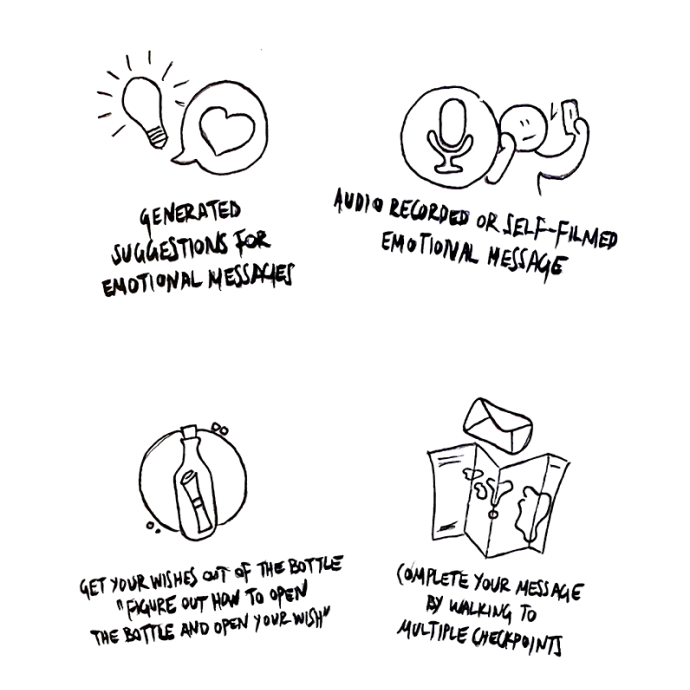 GENERATED
SUGGESTIONS FOR
EMOTIONAL MESSAGES
AUDIO RECORDED OR SELF-FILMED
EMOTIONAL MESSAGE
GET YOUR WISHES OUT OF THE BOTTLE
"FIGURE OUT HOW TO OPEN
THE BOTTLE AND OPEN YOUR WISH"
COMPLETE YOUR MESSAGE
BY WALKING TO
MULTIPLE CHECKPOINTS